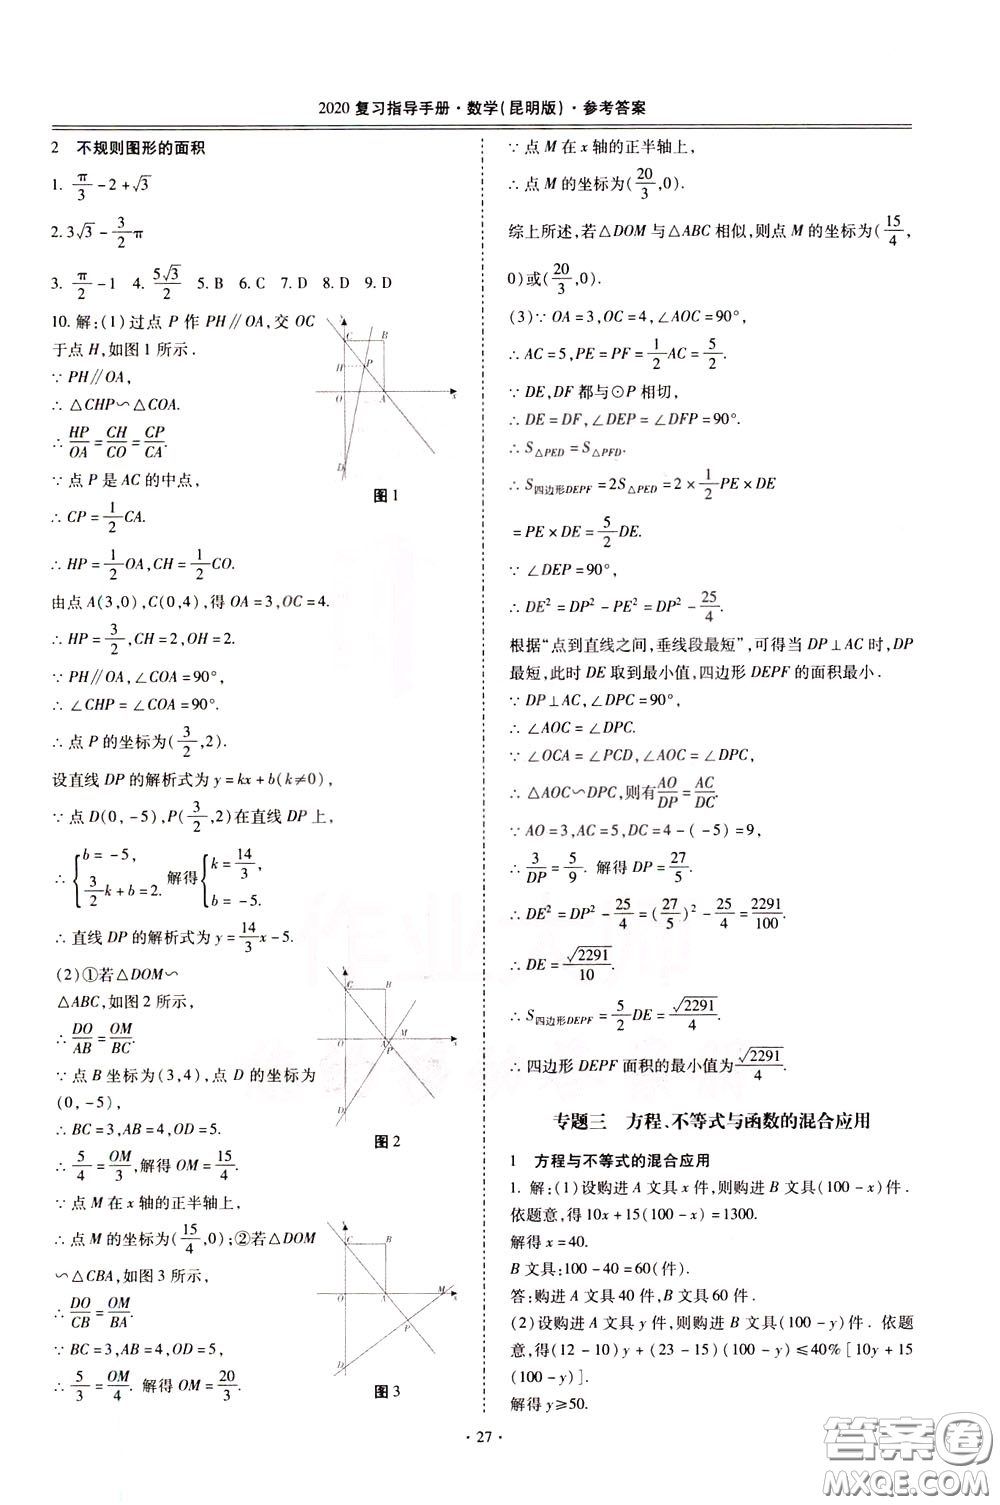 2020 复习指导手册·数学(昆明版)·参考答案
2 不规则图形的面积
1. π/3 - 2 + √3
2. 3√3 - 3/2 π
3. π/2 - 1 4. 5√3/2 5. B 6. C 7. D 8. D 9. D
10. 解:(1)过点 P 作 PH∥OA,交 OC
于点 H,如图 1 所示.
∵ PH∥OA,
∴ △CHP∽△COA.
∴ HP/OA = CH/CO = CP/CA.
∵ 点 P 是 AC 的中点,
∴ CP = 1/2 CA.
∴ HP = 1/2 OA, CH = 1/2 CO.
由点 A(3,0),C(0,4),得 OA = 3,OC = 4.
∴ HP = 3/2, CH = 2, OH = 2.
∵ PH∥OA,∠COA = 90°.
∴ ∠CHP = ∠COA = 90°.
∴ 点 P 的坐标为(3/2,2).
设直线 DP 的解析式为 y = kx + b(k≠0),
∵ 点 D(0,-5),P(3/2,2)在直线 DP 上,
∴ { b = -5, 3/2 k + b = 2. 解得 { k = 14/3, b = -5.
∴ 直线 DP 的解析式为 y = 14/3 x - 5.
(2)①若△DOM∽
△ABC,如图 2 所示,
∴ DO/AB = OM/BC.
∵ 点 B 坐标为(3,4),点 D 的坐标为
(0,-5),
∴ BC = 3,AB = 4,OD = 5.
∴ 5/4 = OM/3,解得 OM = 15/4.
∵ 点 M 在 x 轴的正半轴上,
∴ 点 M 的坐标为(15/4,0);②若△DOM
∽△CBA,如图 3 所示,
∴ DO/CB = OM/BA.
∵ BC = 3,AB = 4,OD = 5,
∴ 5/3 = OM/4. 解得 OM = 20/3.
y
C
B
H
P
O
A
x
D
图 1
y
C
B
O
A
M
P
x
D
图 2
y
C
B
O
A
M
x
P
D
图 3
∵ 点 M 在 x 轴的正半轴上,
∴ 点 M 的坐标为(20/3,0).
综上所述,若△DOM 与△ABC 相似,则点 M 的坐标为(15/4,
0)或(20/3,0).
(3)∵ OA = 3,OC = 4,∠AOC = 90°,
∴ AC = 5,PE = PF = 1/2 AC = 5/2.
∵ DE,DF 都与⊙P 相切,
∴ DE = DF,∠DEP = ∠DFP = 90°.
∴ S△PED = S△PFD.
∴ S四边形DEPF = 2S△PED = 2 × 1/2 PE × DE
= PE × DE = 5/2 DE.
∵ ∠DEP = 90°,
∴ DE² = DP² - PE² = DP² - 25/4.
根据“点到直线之间,垂线段最短”,可得当 DP⊥AC 时,DP
最短,此时 DE 取到最小值,四边形 DEPF 的面积最小.
∵ DP⊥AC,∠DPC = 90°,
∴ ∠AOC = ∠DPC.
∵ ∠OCA = ∠PCD,∠AOC = ∠DPC,
∴ △AOC∽△DPC,则有 AO/DP = AC/DC.
∵ AO = 3,AC = 5,DC = 4 - (-5) = 9,
∴ 3/DP = 5/9. 解得 DP = 27/5.
∴ DE² = DP² - 25/4 = (27/5)² - 25/4 = 2291/100.
∴ DE = √2291/10.
∴ S四边形DEPF = 5/2 DE = √2291/4.
∴ 四边形 DEPF 面积的最小值为 √2291/4.
专题三 方程、不等式与函数的混合应用
1 方程与不等式的混合应用
1. 解:(1)设购进 A 文具 x 件,则购进 B 文具(100 - x)件.
依题意,得 10x + 15(100 - x) = 1300.
解得 x = 40.
B 文具:100 - 40 = 60(件).
答:购进 A 文具 40 件,B 文具 60 件.
(2)设购进 A 文具 y 件,则购进 B 文具(100 - y)件. 依题
意,得(12 - 10)y + (23 - 15)(100 - y) ≤ 40% [10y + 15
(100 - y)].
解得 y ≥ 50.
· 27 ·
答案卷
MXQE.COM